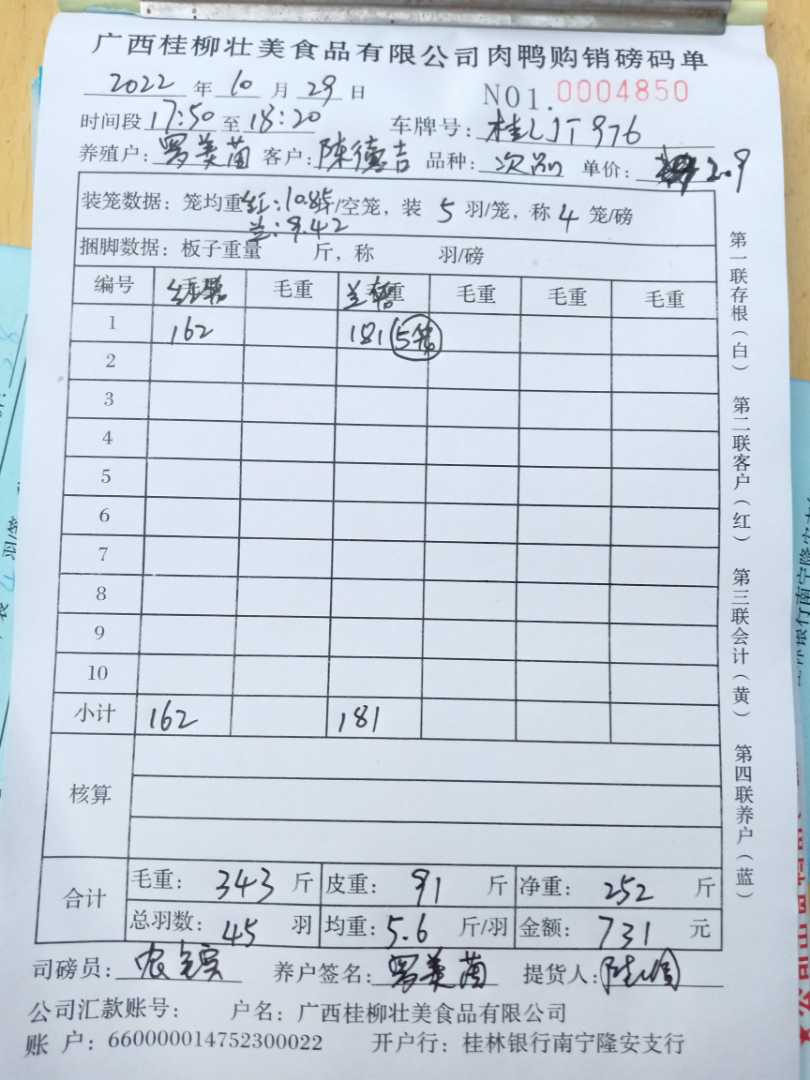 广西桂柳壮美食品有限公司肉鸭购销磅码单
2022 年 10 月 29 日 NO1. 0004850
时间段 17:50 至 18:20 车牌号: 桂LJT976
养殖户: 罗美苗 客户: 陈德吉 品种: 次品 单价: 2.9
装笼数据: 笼均重 红:10.85/空笼, 装 5 羽/笼, 称 4 笼/磅
兰:9.42
捆脚数据: 板子重量 斤, 称 羽/磅
编号 红笼 毛重 兰笼 毛重 毛重 毛重
1 162 181 (5笼)
2
3
4
5
6
7
8
9
10
小计 162 181
核算
合计 毛重: 343 斤 皮重: 91 斤 净重: 252 斤
总羽数: 45 羽 均重: 5.6 斤/羽 金额: 731 元
司磅员: 养户签名: 罗美苗 提货人:
公司汇款账号: 户名: 广西桂柳壮美食品有限公司
账 户: 660000014752300022 开户行: 桂林银行南宁隆安支行
第一联存根(白) 第二联客户(红) 第三联会计(黄) 第四联养户(蓝)